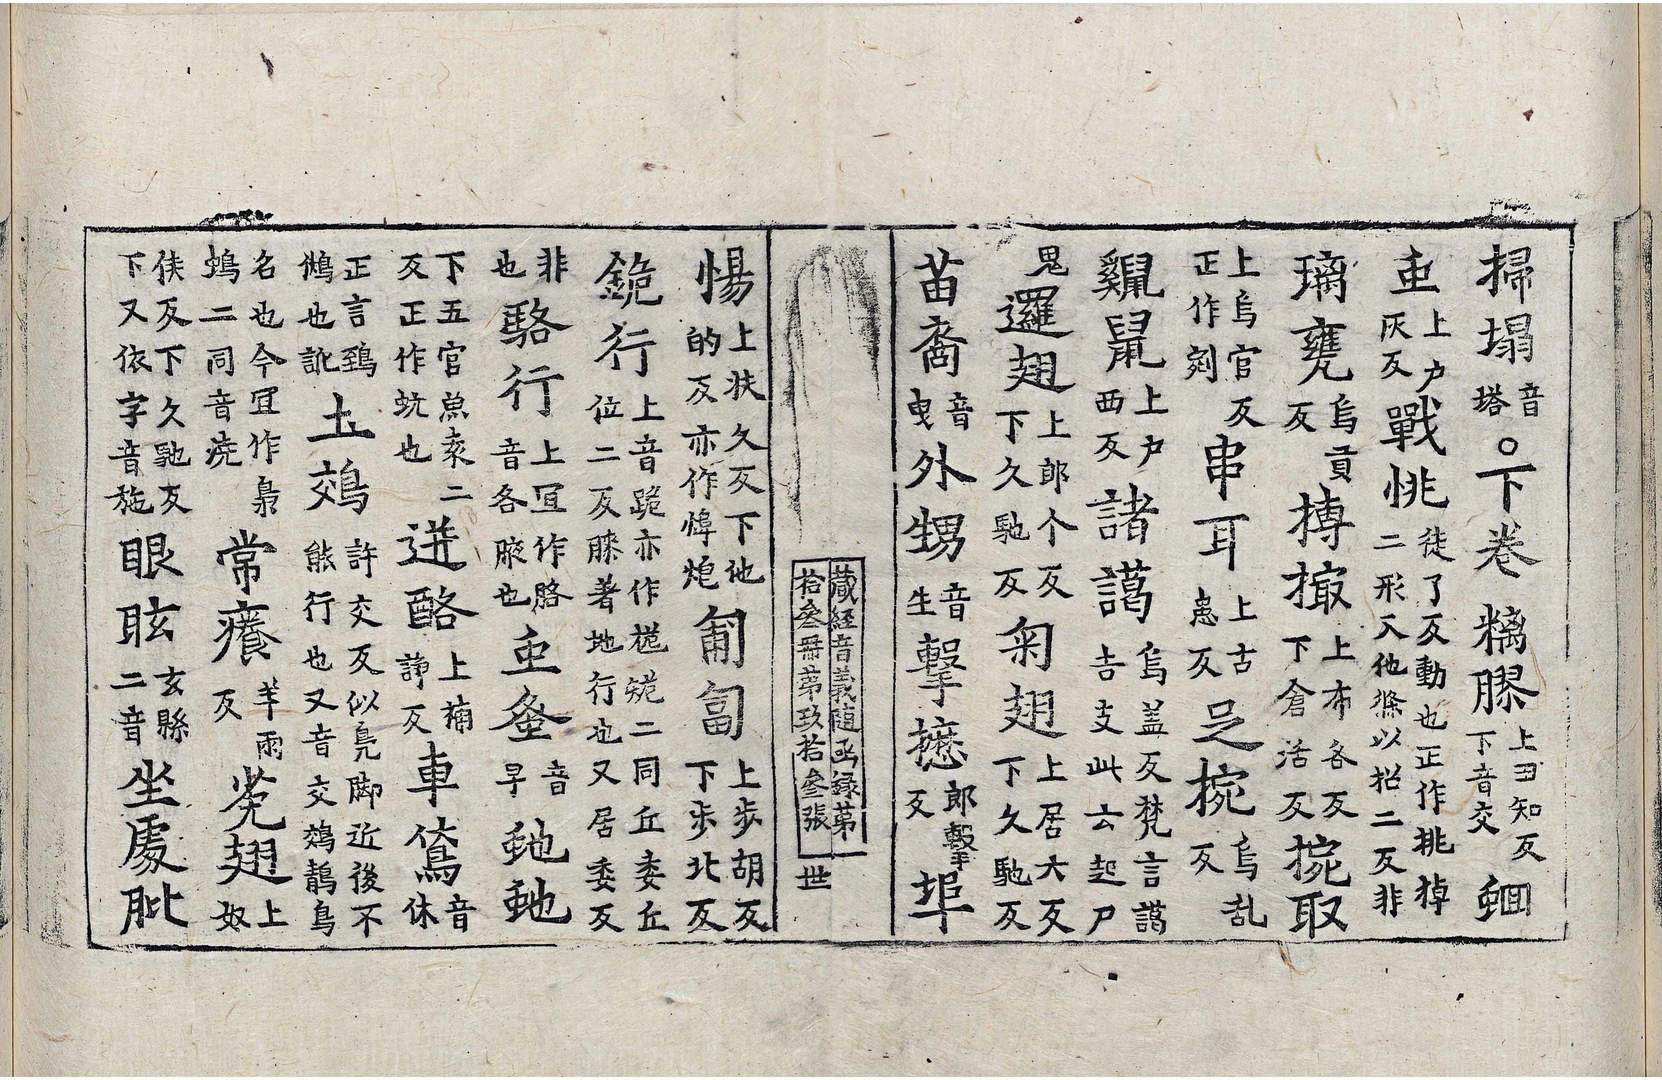 掃塌音塔○下卷𥻿膠上丑知反下音交蛔
䖝上户灰反戰恌徒了反動也正作挑掉二形又他滌以招二反非
璃甕烏貢反摶撮上布各反下倉活反捥取
上烏官反正作剜串耳上古患反足捥烏乱反
鼷鼠上户西反諸譪烏盖反梵言譪吉支此云起尸
鬼邏翅上郎个反下久馳反匊翅上居六反下久馳反
苗裔音曳外甥音生擊攊郎擊反埠
藏經音義随函録第一
拾叄冊第玖拾叄張 世
惕上扶久反下他的反亦作愺炮匍匐上歩胡反下歩北反
鋔行上音跪亦作桅㧪二同丘委丘位二反膝著地行也又居委反
非也駱行上冝作胳音各腋也䖝蚤音早虵虵
下五官魚袁二反正作蚖也迸酪上補諍反車㒑音休
正言鵄鵂也訛土鵁許交反似鳧脚近後不能行也又音交鵁鶄鳥
名也今冝作梟鴞二同音澆常癢羊雨反㒑翅上奴
侠反下久馳反下又依字音施眼眩玄縣二音坐處肶